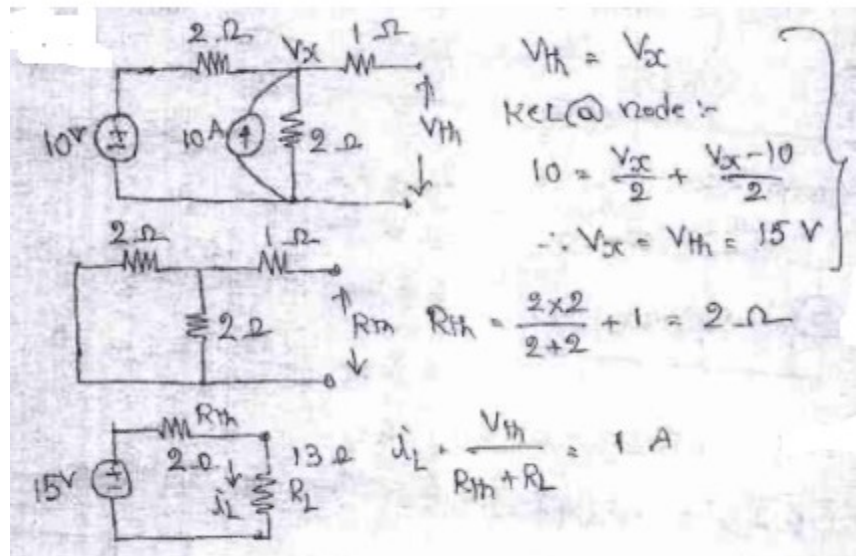 2 Ω Vx 1 Ω
10V 10 A 2 Ω Vth
Vth = Vx
KCL @ node :-
10 = Vx/2 + Vx-10/2
∴ Vx = Vth = 15 V
2 Ω 1 Ω
2 Ω Rth
Rth = 2×2/2+2 + 1 = 2 Ω
Rth
15V 2 Ω iL 13 Ω RL
iL = Vth/Rth+RL = 1 A